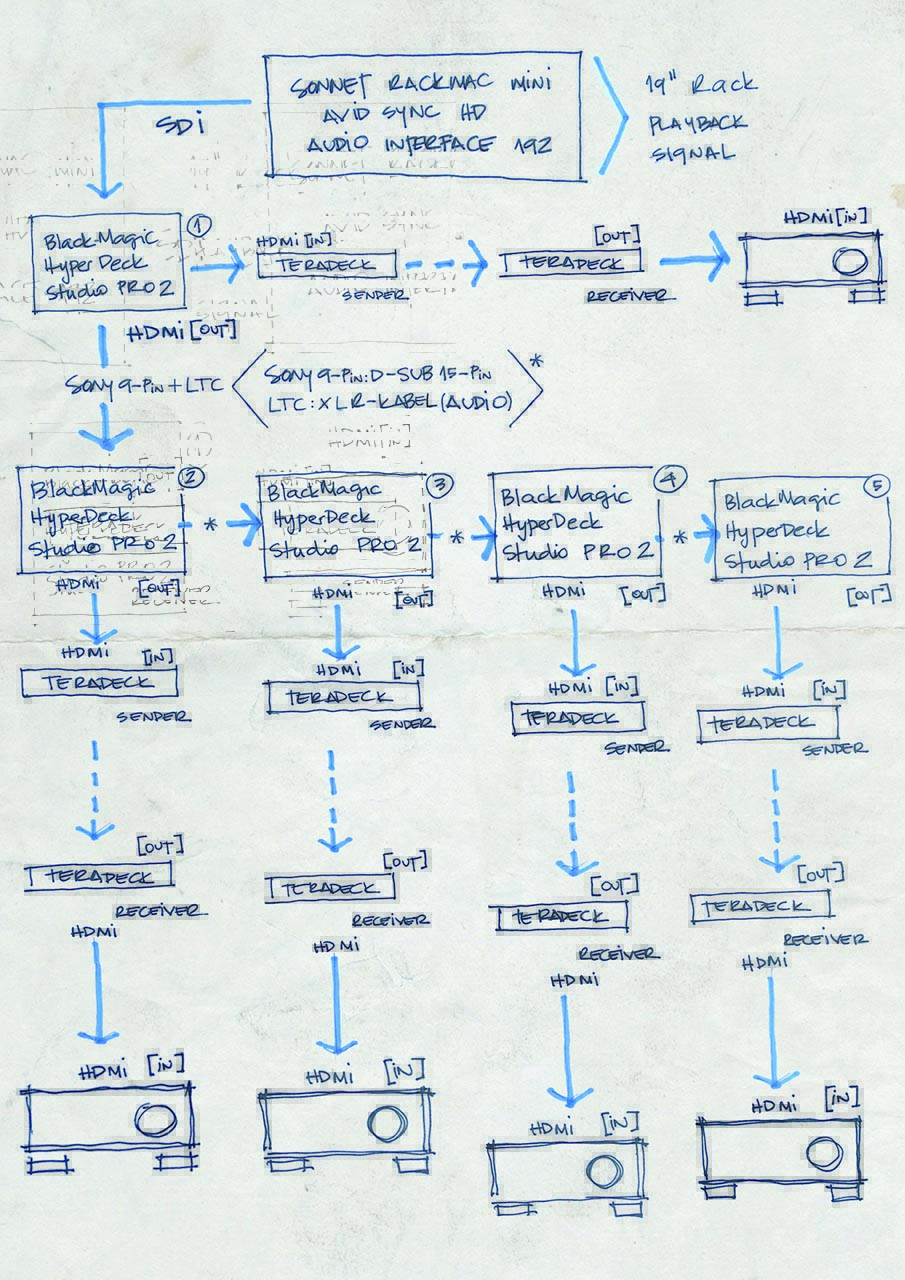 SONNET RACKMAC MINI
AVID SYNC HD
AUDIO INTERFACE 192
19" Rack
PLAYBACK
SIGNAL
SDI
BlackMagic
HyperDeck
Studio PRO 2
1
HDMI [IN]
TERADECK
SENDER
[OUT]
TERADECK
RECEIVER
HDMI [IN]
HDMI [OUT]
SONY 9-PIN + LTC
SONY 9-PIN: D-SUB 15-PIN
LTC: XLR-KABEL (AUDIO)
*
BlackMagic
HyperDeck
Studio PRO 2
2
*
BlackMagic
HyperDeck
Studio PRO 2
3
*
BlackMagic
HyperDeck
Studio PRO 2
4
*
BlackMagic
HyperDeck
Studio PRO 2
5
HDMI [OUT]
HDMI [OUT]
HDMI [OUT]
HDMI [OUT]
HDMI [IN]
TERADECK
SENDER
HDMI [IN]
TERADECK
SENDER
HDMI [IN]
TERADECK
SENDER
HDMI [IN]
TERADECK
SENDER
[OUT]
TERADECK
RECEIVER
HDMI
[OUT]
TERADECK
RECEIVER
HDMI
[OUT]
TERADECK
RECEIVER
HDMI
[OUT]
TERADECK
RECEIVER
HDMI
HDMI [IN]
HDMI [IN]
HDMI [IN]
HDMI [IN]